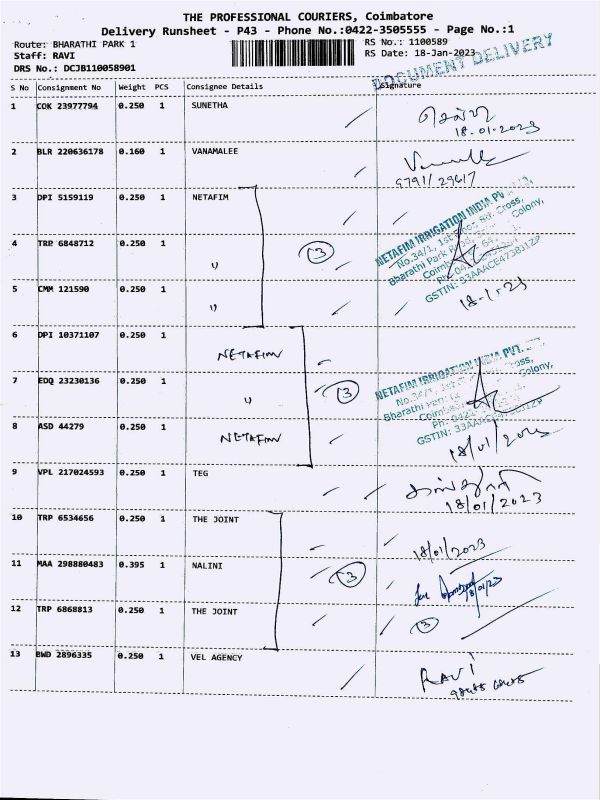 THE PROFESSIONAL COURIERS, Coimbatore
Delivery Runsheet - P43 - Phone No.:0422-3505555 - Page No.:1
Route: BHARATHI PARK 1
RS No.: 1100589
Staff: RAVI
RS Date: 18-Jan-2023
DRS No.: DCJB110058901
DOCUMENT DELIVERY
S No Consignment No Weight PCS Consignee Details Signature
1 COK 23977794 0.250 1 SUNETHA
18.01.2023
2 BLR 220636178 0.160 1 VANAMALEE
9791/29617
3 DPI 5159119 0.250 1 NETAFIM
NETAFIM IRRIGATION INDIA PV
No.34/1, 1st Floor, 3rd Cross,
4 TRP 6848712 0.250 1 " 3
Bharathi Park Road, Colony,
Coimb
GSTIN: 33AAACE4738J1ZP
5 CMM 121590 0.250 1 "
18-1-23
6 DPI 10371107 0.250 1 NETAFIM
NETAFIM IRRIGATION INDIA PVT.
7 EDQ 23230136 0.250 1 " 3
No.34/1, 1st Cross,
Bharathi Colony,
Ph: 0422
GSTIN: 33AAACE4738J1ZP
8 ASD 44279 0.250 1 NETAFIM
18/01/2023
9 VPL 217024593 0.250 1 TEG
18/01/2023
10 TRP 6534656 0.250 1 THE JOINT
18/01/2023
11 MAA 298880483 0.395 1 NALINI 3
18/01/23
12 TRP 6868813 0.250 1 THE JOINT 3
13 BWD 2896335 0.250 1 VEL AGENCY
RAVI